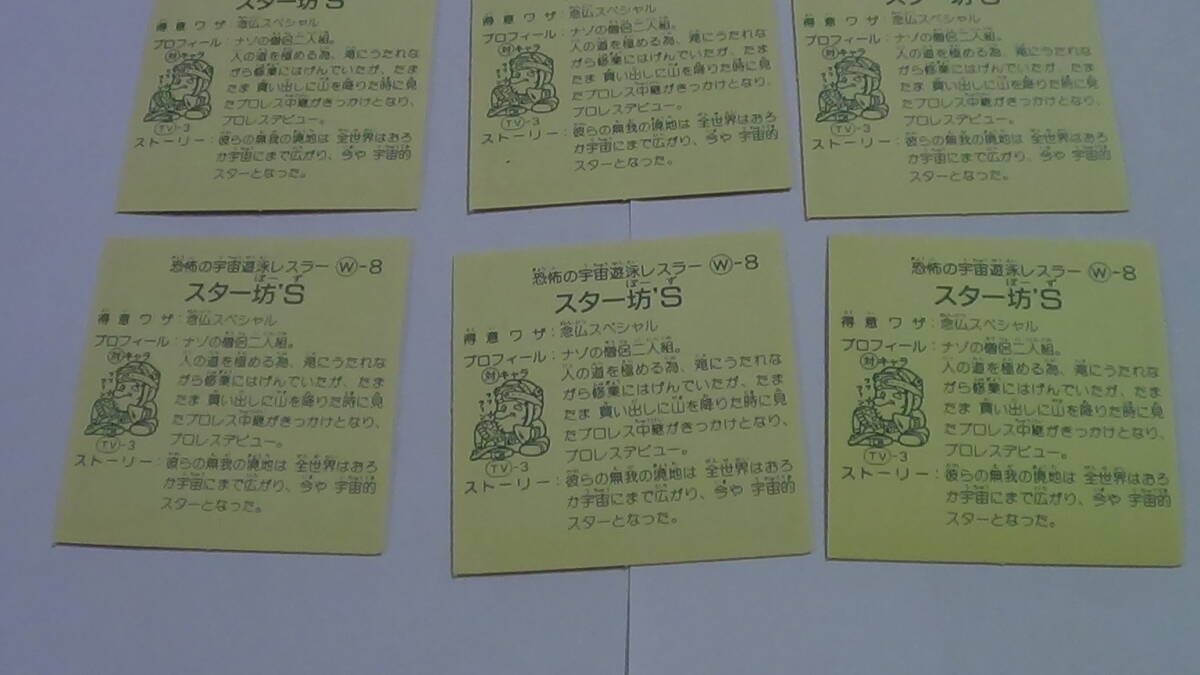 スター坊'S
得意ワザ：念仏スペシャル
プロフィール：ナゾの僧侶二人組。
人の道を極める為、滝にうたれな
がら修業にはげんでいたが、たま
たま 買い出しに山を降りた時に見
たプロレス中継がきっかけとなり、
プロレスデビュー。
対キャラ
TV-3
ストーリー：彼らの無我の境地は 全世界はおろ
か宇宙にまで広がり、今や 宇宙的
スターとなった。
得意ワザ：念仏スペシャル
プロフィール：ナゾの僧侶二人組。
人の道を極める為、滝にうたれな
がら修業にはげんでいたが、たま
たま 買い出しに山を降りた時に見
たプロレス中継がきっかけとなり、
プロレスデビュー。
対キャラ
TV-3
ストーリー：彼らの無我の境地は 全世界はおろ
か宇宙にまで広がり、今や 宇宙的
スターとなった。
スター坊'S
得意ワザ：念仏スペシャル
プロフィール：ナゾの僧侶二人組。
人の道を極める為、滝にうたれな
がら修業にはげんでいたが、たま
たま 買い出しに山を降りた時に見
たプロレス中継がきっかけとなり、
プロレスデビュー。
対キャラ
TV-3
ストーリー：彼らの無我の境地は 全世界はおろ
か宇宙にまで広がり、今や 宇宙的
スターとなった。
恐怖の宇宙遊泳レスラー W-8
スター坊'S
得意ワザ：念仏スペシャル
プロフィール：ナゾの僧侶二人組。
人の道を極める為、滝にうたれな
がら修業にはげんでいたが、たま
たま 買い出しに山を降りた時に見
たプロレス中継がきっかけとなり、
プロレスデビュー。
対キャラ
TV-3
ストーリー：彼らの無我の境地は 全世界はおろ
か宇宙にまで広がり、今や 宇宙的
スターとなった。
恐怖の宇宙遊泳レスラー W-8
スター坊'S
得意ワザ：念仏スペシャル
プロフィール：ナゾの僧侶二人組。
人の道を極める為、滝にうたれな
がら修業にはげんでいたが、たま
たま 買い出しに山を降りた時に見
たプロレス中継がきっかけとなり、
プロレスデビュー。
対キャラ
TV-3
ストーリー：彼らの無我の境地は 全世界はおろ
か宇宙にまで広がり、今や 宇宙的
スターとなった。
恐怖の宇宙遊泳レスラー W-8
スター坊'S
得意ワザ：念仏スペシャル
プロフィール：ナゾの僧侶二人組。
人の道を極める為、滝にうたれな
がら修業にはげんでいたが、たま
たま 買い出しに山を降りた時に見
たプロレス中継がきっかけとなり、
プロレスデビュー。
対キャラ
TV-3
ストーリー：彼らの無我の境地は 全世界はおろ
か宇宙にまで広がり、今や 宇宙的
スターとなった。